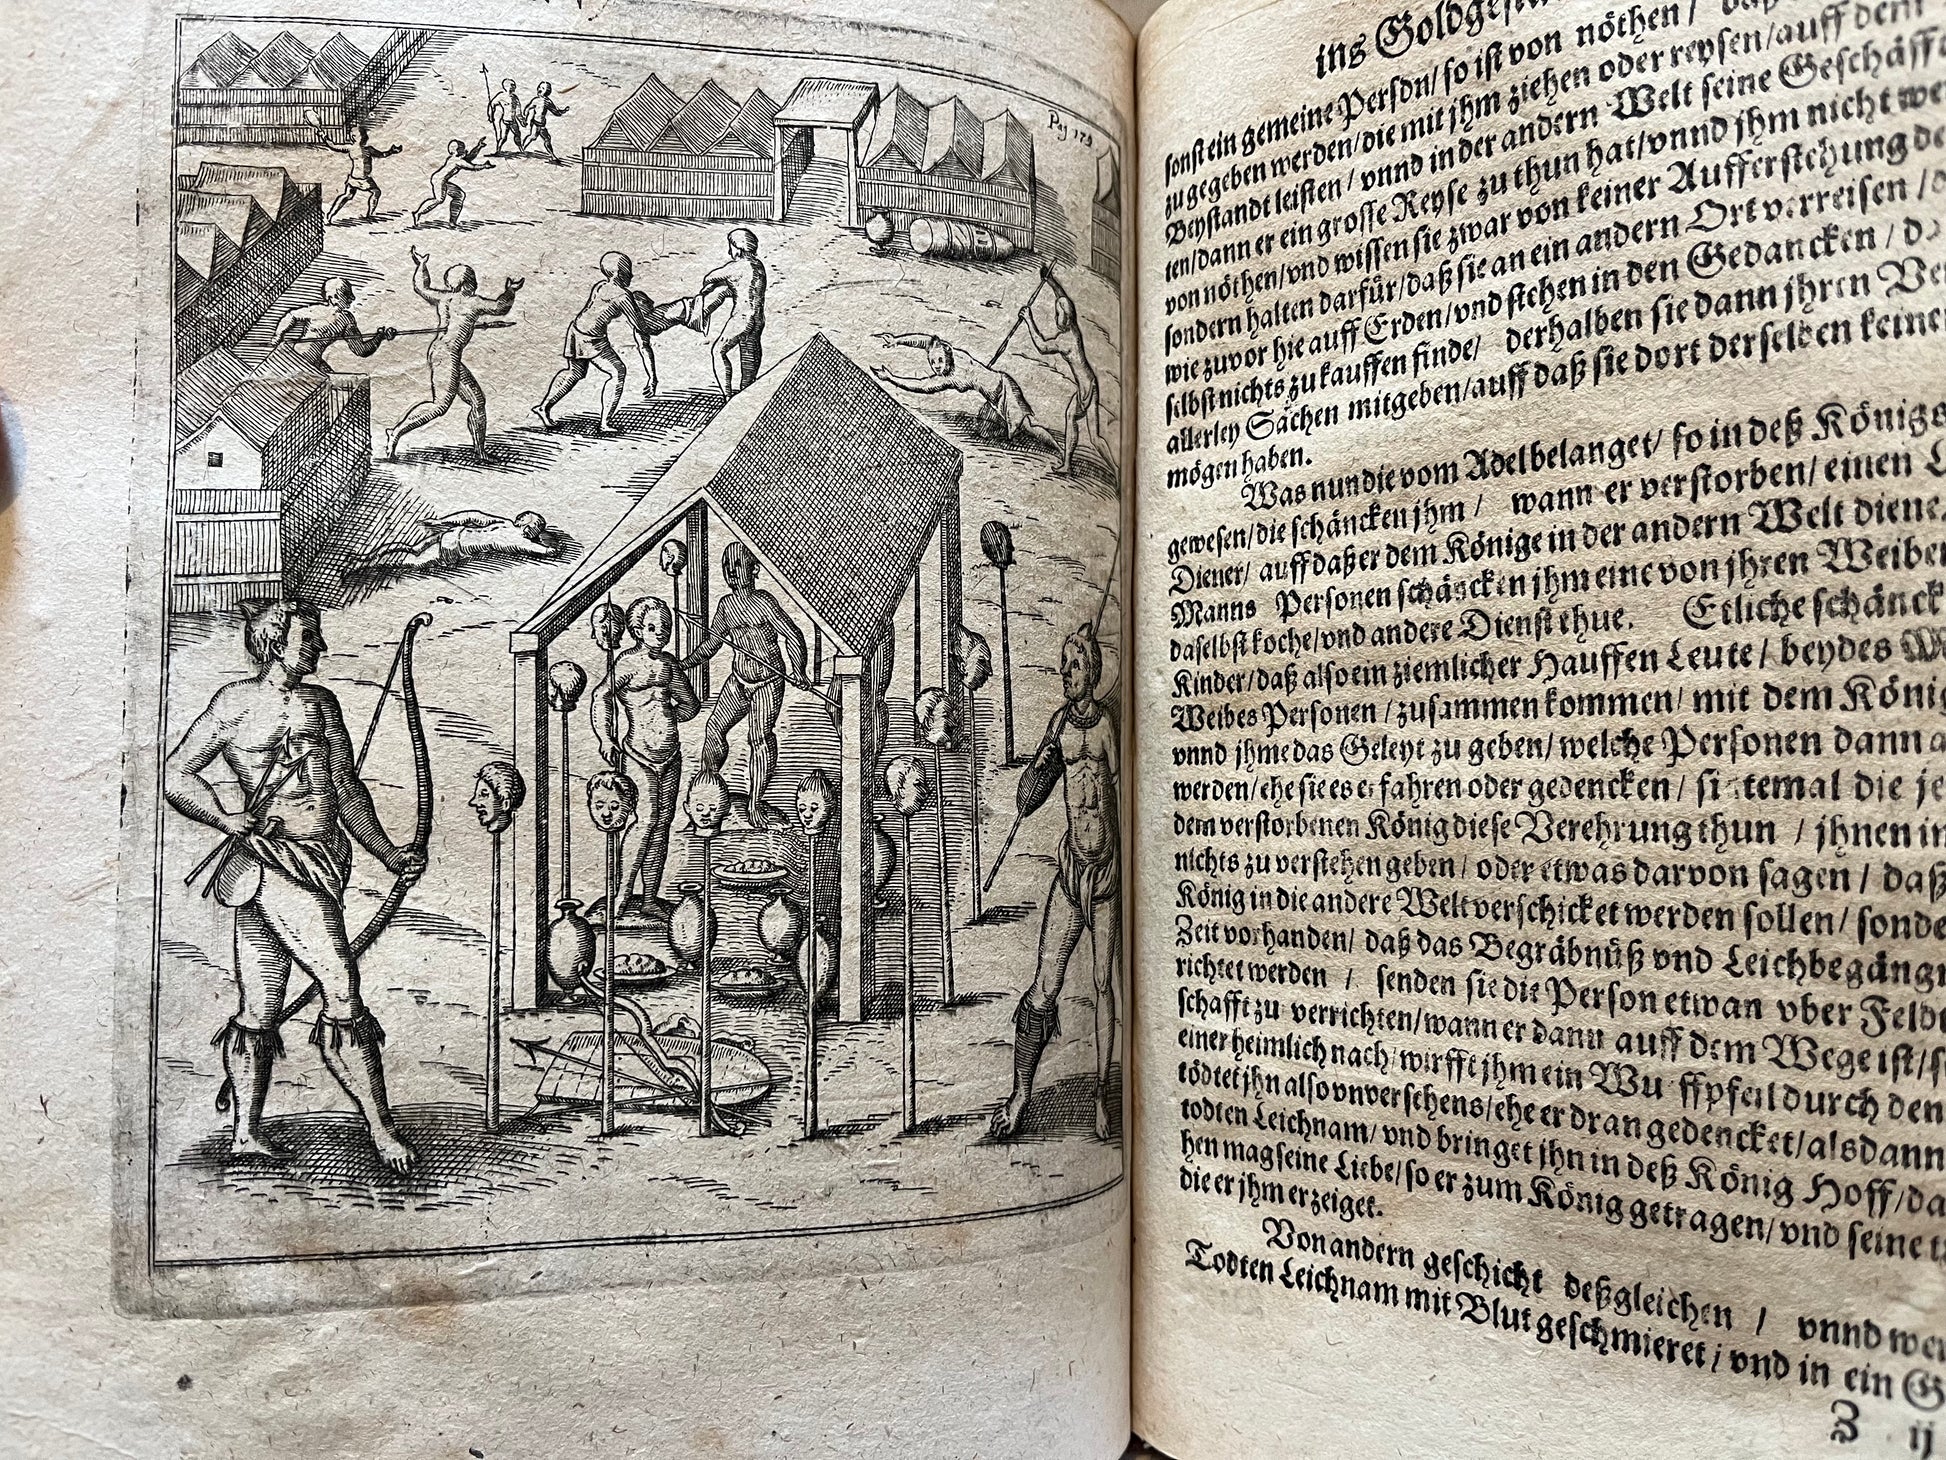 Pag 175
ins Goldgest
sonst ein gemeine Person/ so ist von nöthen/ daß
zugegeben werden/ die mit jhm ziehen oder reysen/ auff dem
Beystandt leisten/ vnnd in der andern Welt seine Geschäfft
ten/ dann er ein grosse Reyse zu thun hat/ vnnd jhm nicht we
von nöthen/ vnd wissen sie zwar von keiner Aufferstehung de
sondern halten darfür/ daß sie an ein andern Ort verreisen/
wie zuvor hie auff Erden/ vnd stehen in den Gedancken/ d
selbst nichts zu kauffen finde/ derhalben sie dann jhren Ve
allerley Sachen mitgeben/ auff daß sie dort derselben keine
mögen haben.
Was nun die vom Adel belanget/ so in deß Königs
gewesen/ die schäncken jhm/ wann er verstorben/ einen
Diener/ auff daß er dem Könige in der andern Welt diene
Manns Personen schäncken jhm eine von jhren Weiber
daselbst koche/ vnd andere Dienst thue. Etliche schänck
Kinder/ daß also ein ziemlicher Hauffen Leute/ beydes
Weibes Personen/ zusammen kommen/ mit dem König
vnnd jhme das Geleyt zu geben/ welche Personen dann a
werden/ ehe sie es erfahren oder gedencken/ sintemal die je
dem verstorbenen König diese Verehrung thun/ jhnen in
nichts zu verstehen geben/ oder etwas darvon sagen/ daß
König in die andere Welt verschicket werden sollen/ sonde
Zeit vorhanden/ daß das Begräbnüß vnd Leichbegäng
richtet werden/ senden sie die Person etwan vber Feldt
schafft zu verrichten/ wann er dann auff dem Wege ist/ s
einer heimlich nach/ wirfft jhm ein Wurffpfeil durch den
tödtet jhn also vnversehens/ ehe er dran gedencket/ alsdann
todten Leichnam/ vnd bringet jhn in deß König Hoff/ da
hen mag seine Liebe/ so er zum König getragen/ vnd seine
die er jhm erzeiget.
Von andern geschicht deßgleichen/ vnnd wer
Todten Leichnam mit Blut geschmieret/ vnd in ein G
Z ij